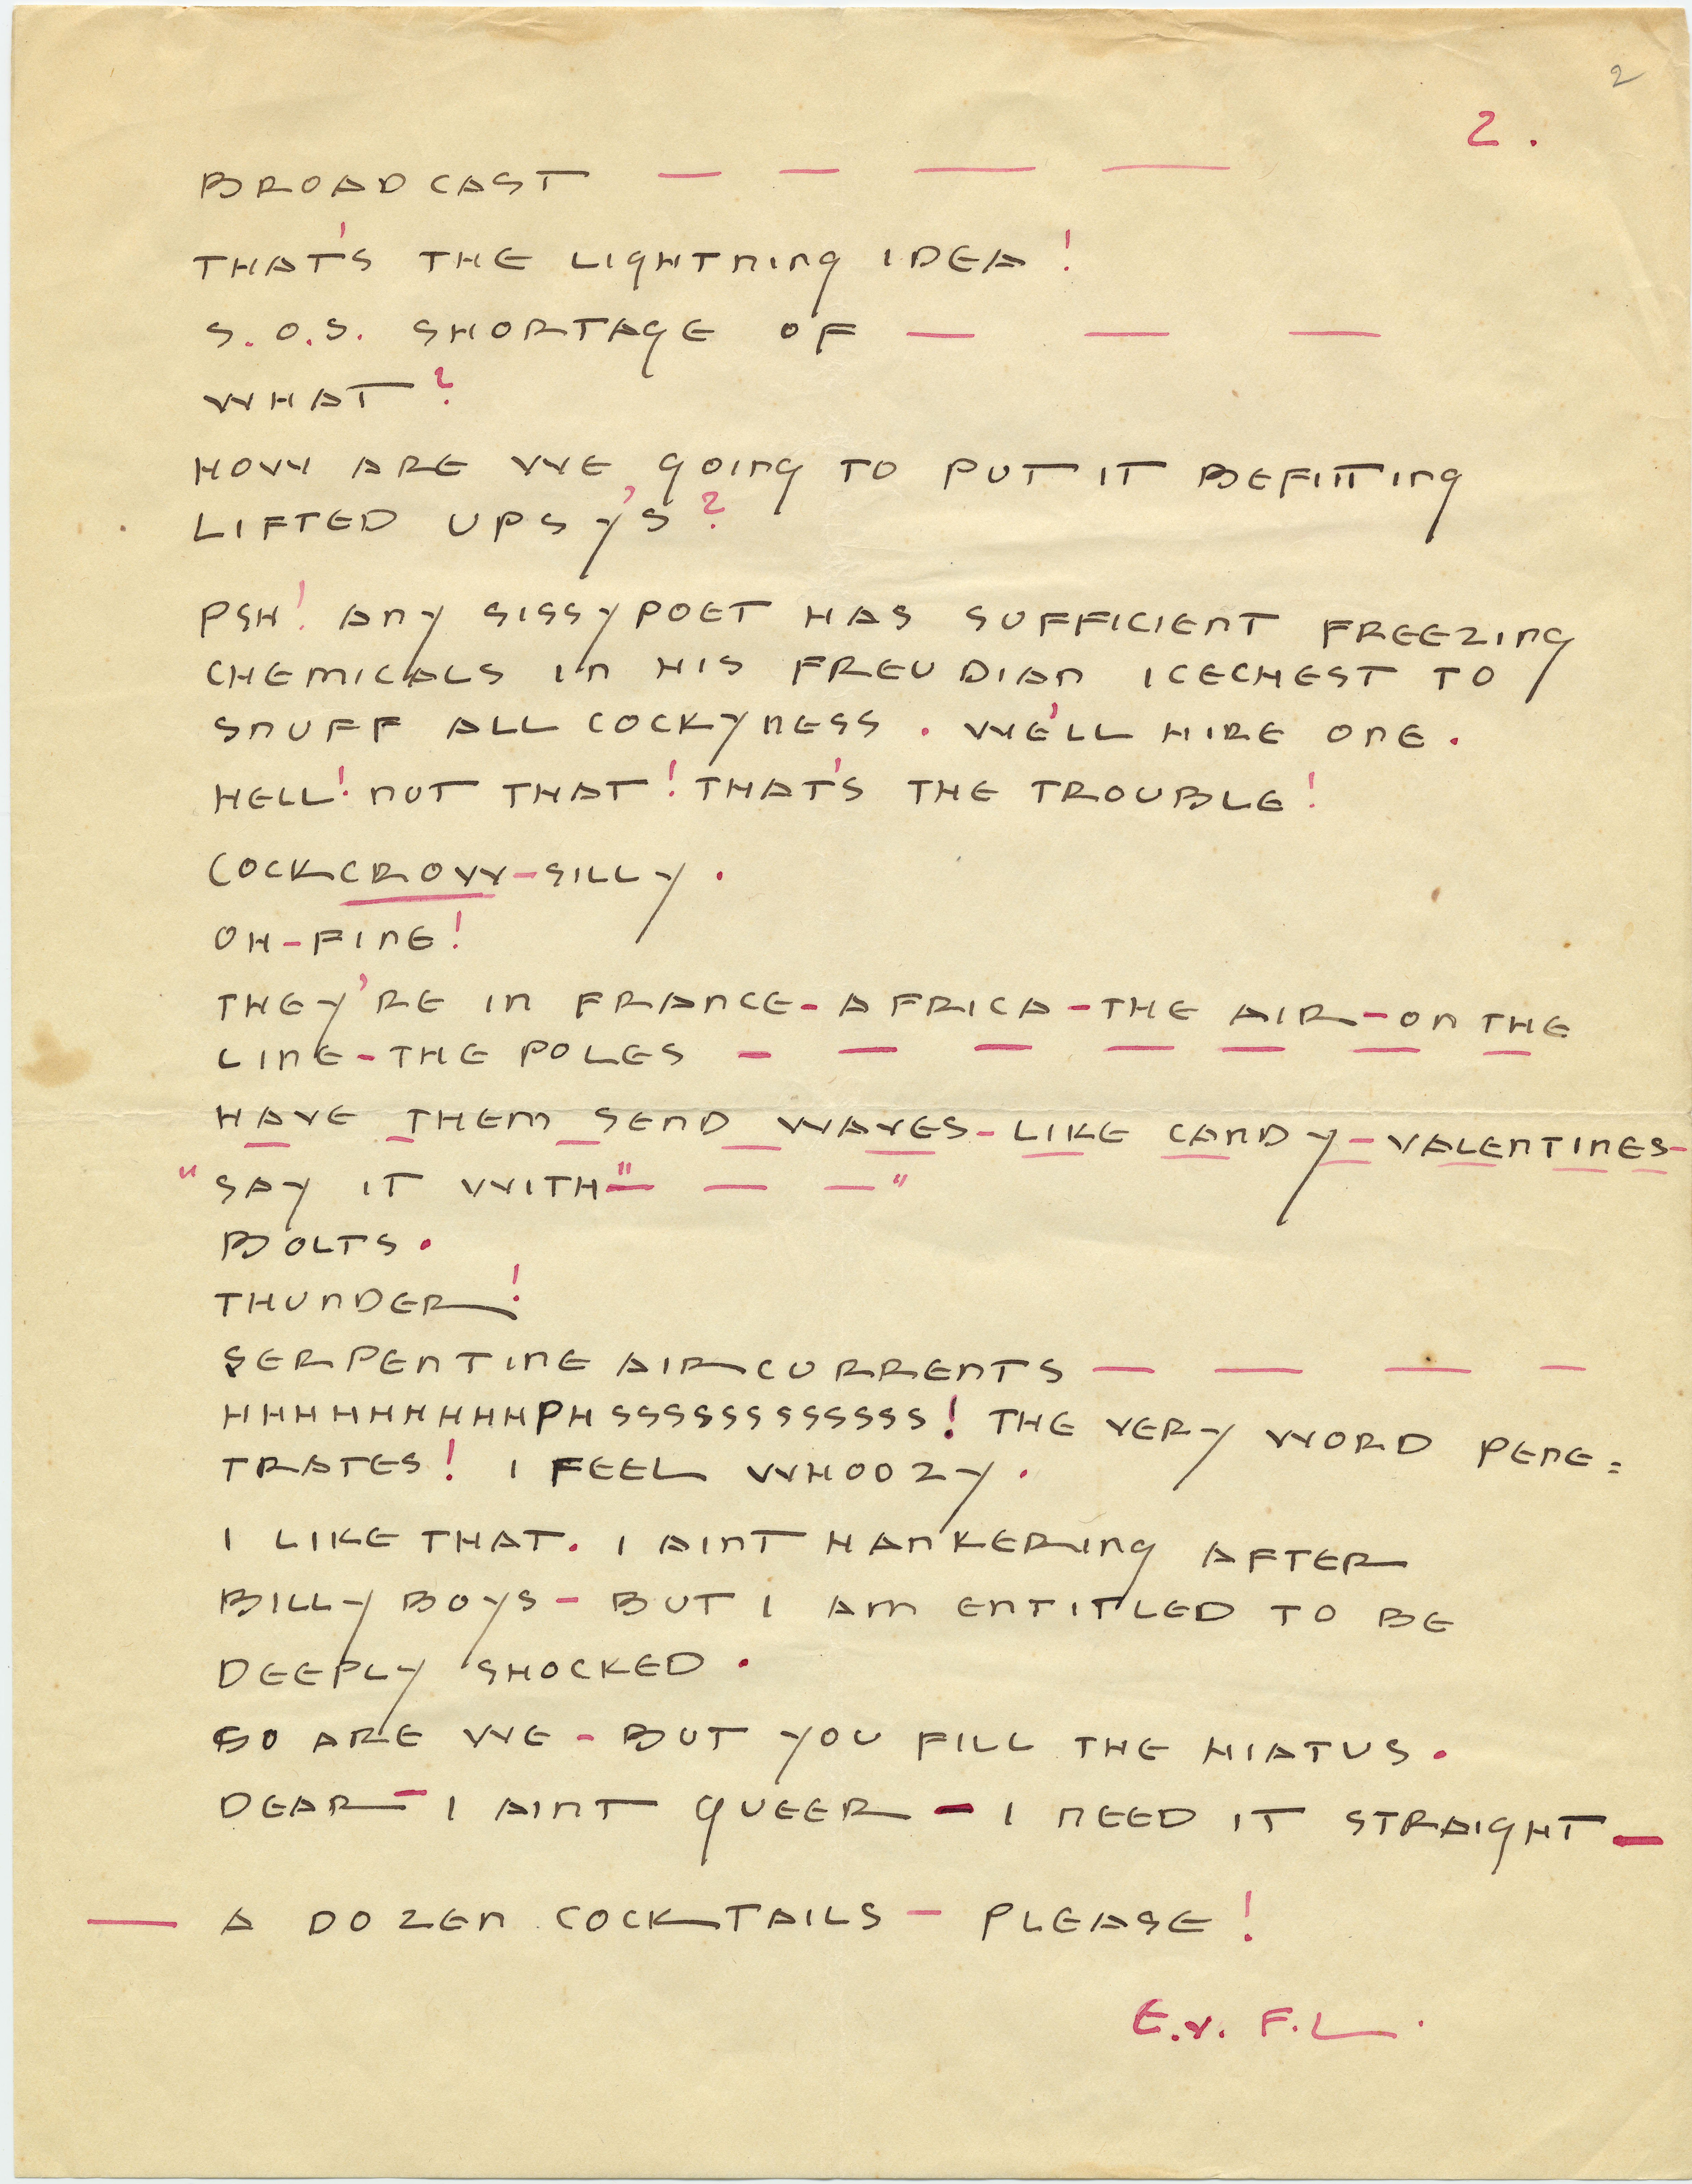 2
2.
BROADCAST — — — —
THAT'S THE LIGHTNING IDEA!
S.O.S. SHORTAGE OF — — —
WHAT?
HOW ARE WE GOING TO PUT IT BEFITTING
LIFTED UPSY'S?
PSH! ANY SISSYPOET HAS SUFFICIENT FREEZING
CHEMICALS IN HIS FREUDIAN ICECHEST TO
SNUFF ALL COCKYNESS. WE'LL HIRE ONE.
HELL! NOT THAT! THAT'S THE TROUBLE!
COCKCROW-SILLY.
OH-FINE!
THEY'RE IN FRANCE-AFRICA-THE AIR-ON THE
LINE-THE POLES — — — — — — —
HAVE THEM SEND WAVES-LIKE CANDY-VALENTINES-
"SAY IT WITH" — — —"
BOLTS.
THUNDER!
SERPENTINE AIRCURRENTS — — — —
HHHHHHHHHPHSSSSSSSSSSSS! THE VERY WORD PENE=
TRATES! I FEEL WHOOZY.
I LIKE THAT. I AINT HANKERING AFTER
BILLY BOYS-BUT I AM ENTITLED TO BE
DEEPLY SHOCKED.
SO ARE WE-BUT YOU FILL THE HIATUS.
DEAR-I AINT QUEER-I NEED IT STRAIGHT—
— A DOZEN COCKTAILS-PLEASE!
E.V. F.L.